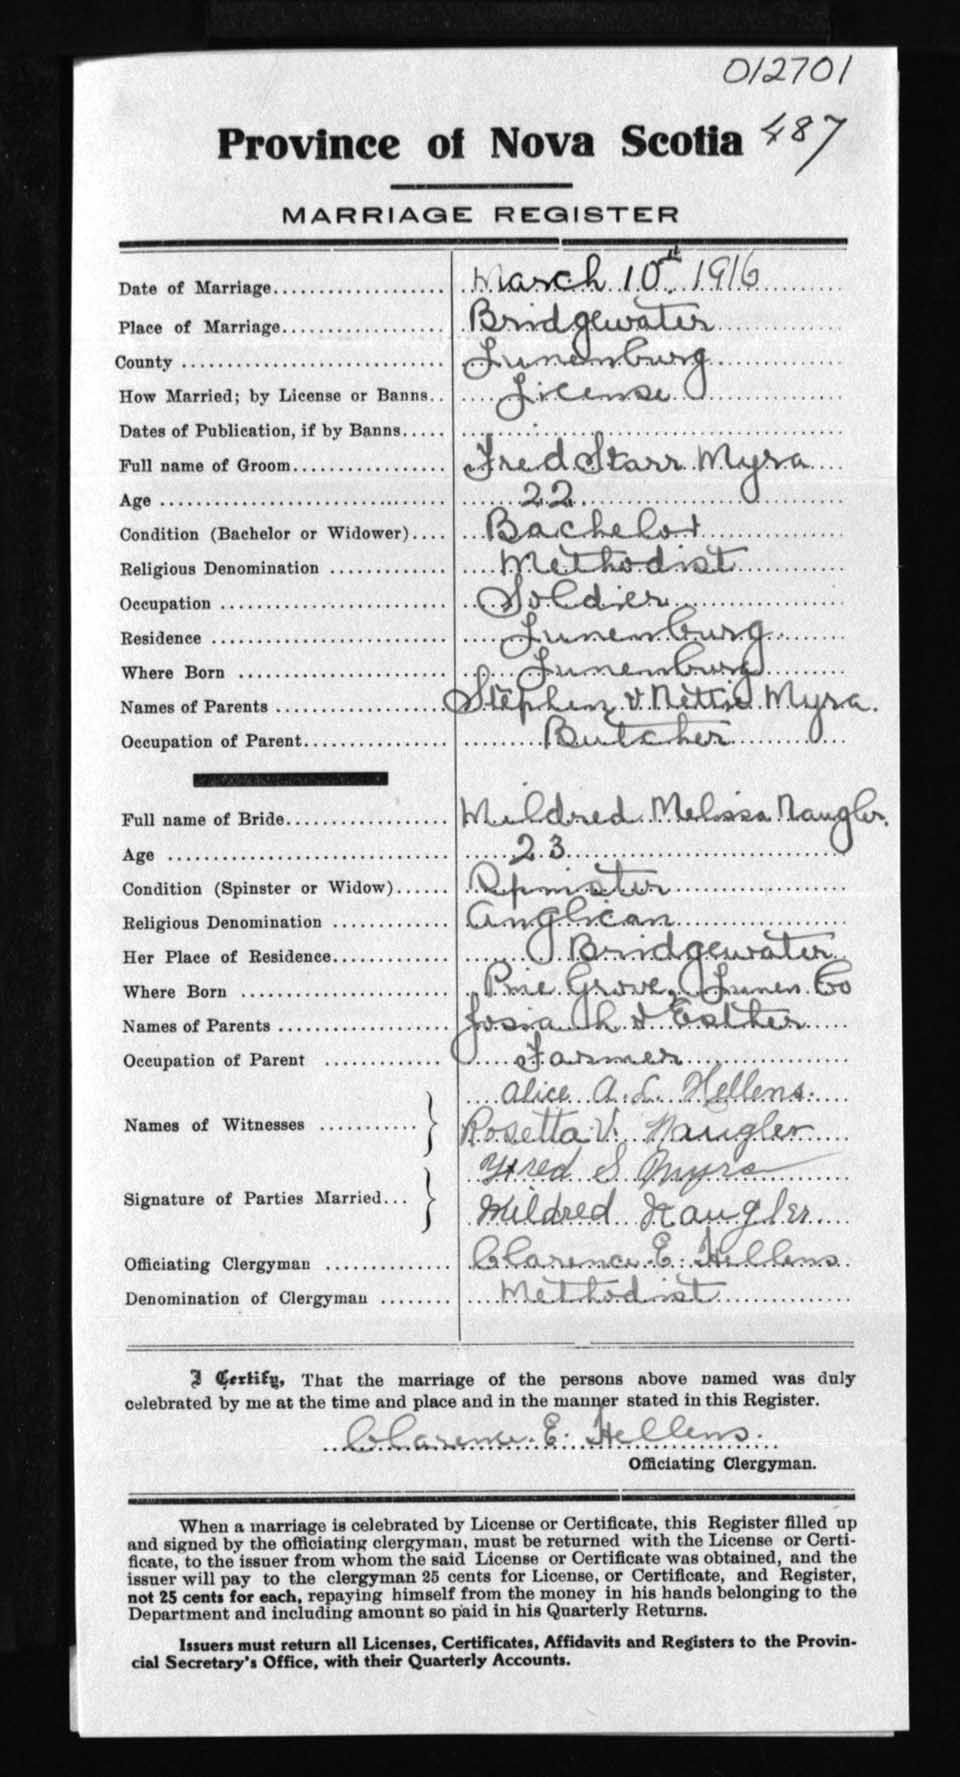 012701
Province of Nova Scotia 487
MARRIAGE REGISTER
Date of Marriage................... March 10th 1916
Place of Marriage.................. Bridgewater
County ............................. Lunenburg
How Married; by License or Banns.. License
Dates of Publication, if by Banns.....
Full name of Groom................. Fred Starr Myra
Age ............................... 22
Condition (Bachelor or Widower).... Bachelor
Religious Denomination ............. Methodist
Occupation ......................... Soldier
Residence .......................... Lunenburg
Where Born ......................... Lunenburg
Names of Parents ................... Stephen & Nettie Myra.
Occupation of Parent................ Butcher
Full name of Bride.................. Mildred Melissa Naugler.
Age ................................ 23
Condition (Spinster or Widow)...... Spinster
Religious Denomination ............. Anglican
Her Place of Residence............. Bridgewater
Where Born ......................... Pine Grove, Lunen. Co
Names of Parents ................... Josiah & Esther
Occupation of Parent ............... Farmer
Alice A. L. Hellens.
Names of Witnesses ...........
Rosetta V. Naugler
Fred S Myra
Signature of Parties Married...
Mildred Naugler
Officiating Clergyman ............. Clarence E. Hellens
Denomination of Clergyman ........ Methodist
I Certify, That the marriage of the persons above named was duly
celebrated by me at the time and place and in the manner stated in this Register.
Clarence E. Hellens.
Officiating Clergyman.
When a marriage is celebrated by License or Certificate, this Register filled up
and signed by the officiating clergyman, must be returned with the License or Certi-
ficate, to the issuer from whom the said License or Certificate was obtained, and the
issuer will pay to the clergyman 25 cents for License, or Certificate, and Register,
not 25 cents for each, repaying himself from the money in his hands belonging to the
Department and including amount so paid in his Quarterly Returns.
Issuers must return all Licenses, Certificates, Affidavits and Registers to the Provin-
cial Secretary's Office, with their Quarterly Accounts.